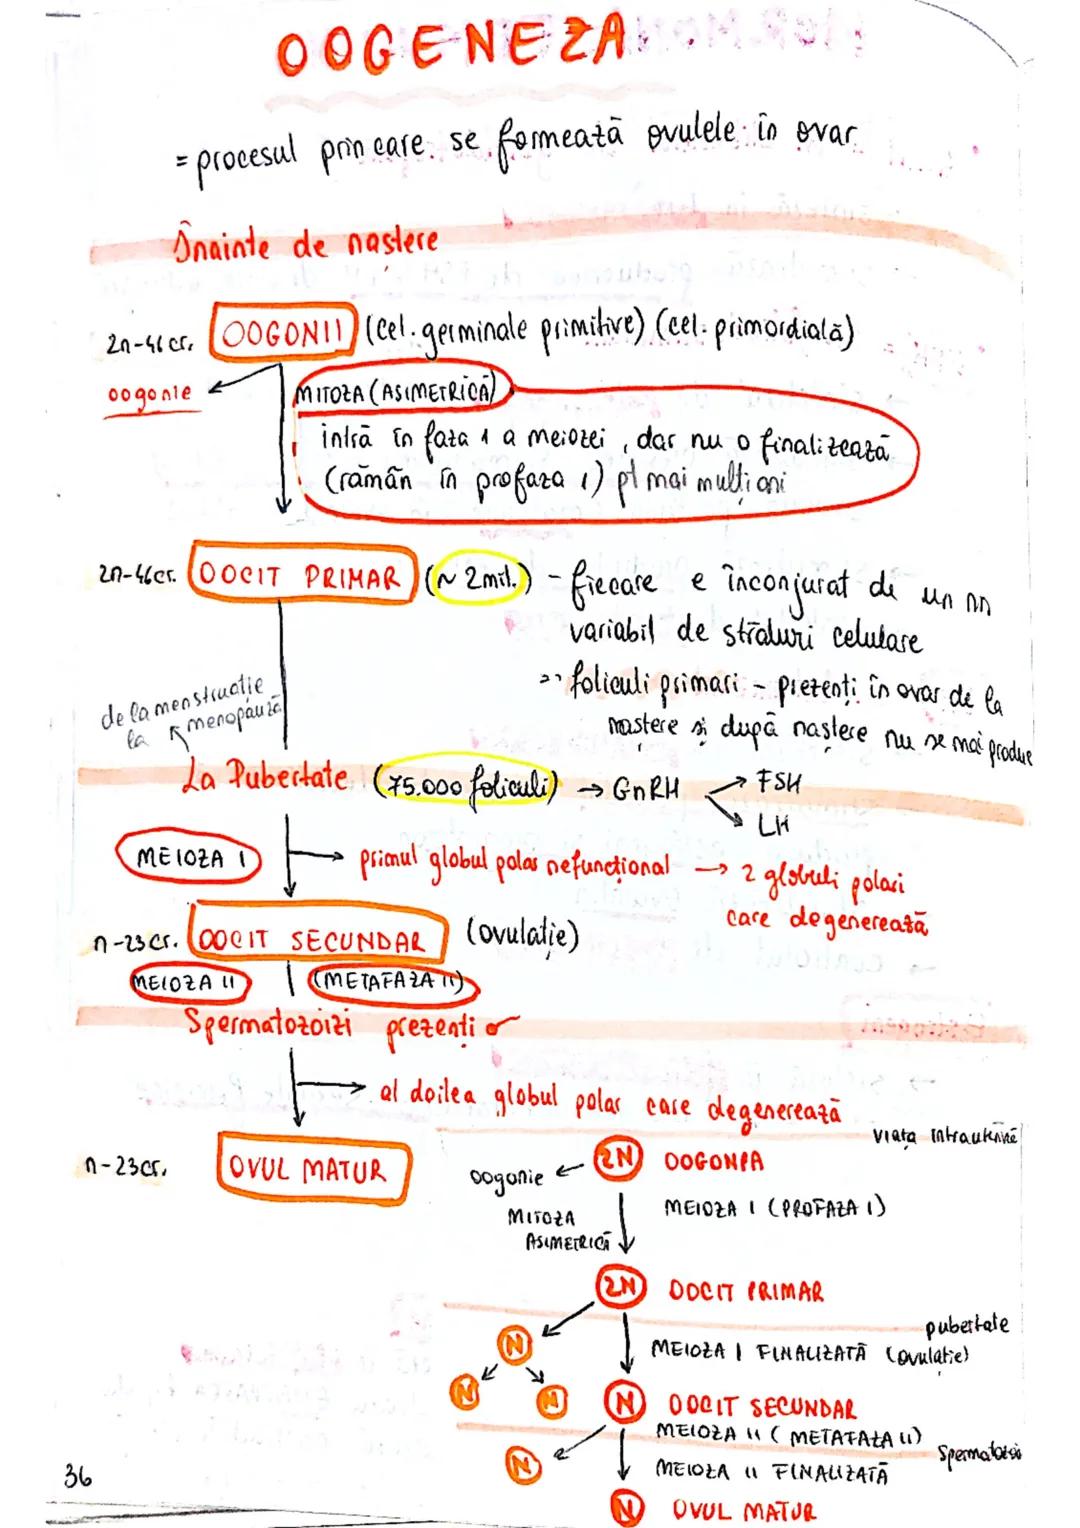 OOGENEZA
= procesul prin care se formează ovulele în ovar
Înainte de naștere
2n-46 cr. OOGONII (cel. germinale primitive) (cel. primordială)
oogonie
MITOZA (ASIMETRICĂ)
intră în faza 1 a meiozei, dar nu o finalizează
(rămân în profaza 1) pt mai mulți ani
2n-46cr. OOCIT PRIMAR (~ 2mil.) - fiecare e înconjurat de un nr
variabil de straturi celulare
=> foliculi primari - prezenți în ovar de la
naștere și după naștere nu se mai produc
de la menstruație
la menopauză
La Pubertate (75.000 foliculi) → GnRH → FSH
→ LH
MEIOZA I → primul globul polar nefuncțional → 2 globuli polari
care degenerează
n-23cr. OOCIT SECUNDAR (ovulație)
MEIOZA II (METAFAZA II)
Spermatozoizi prezenți ♂
→ al doilea globul polar care degenerează
n-23cr. OVUL MATUR
viața intrauterină
oogonie ← 2N OOGONIA
MITOZA
ASIMETRICĂ
MEIOZA I (PROFAZA I)
2N OOCIT PRIMAR
pubertate
N
MEIOZA I FINALIZATĂ (ovulație)
N N N OOCIT SECUNDAR
MEIOZA II (METAFAZA II)
Spermatozoizi
N MEIOZA II FINALIZATĂ
36
N OVUL MATUR